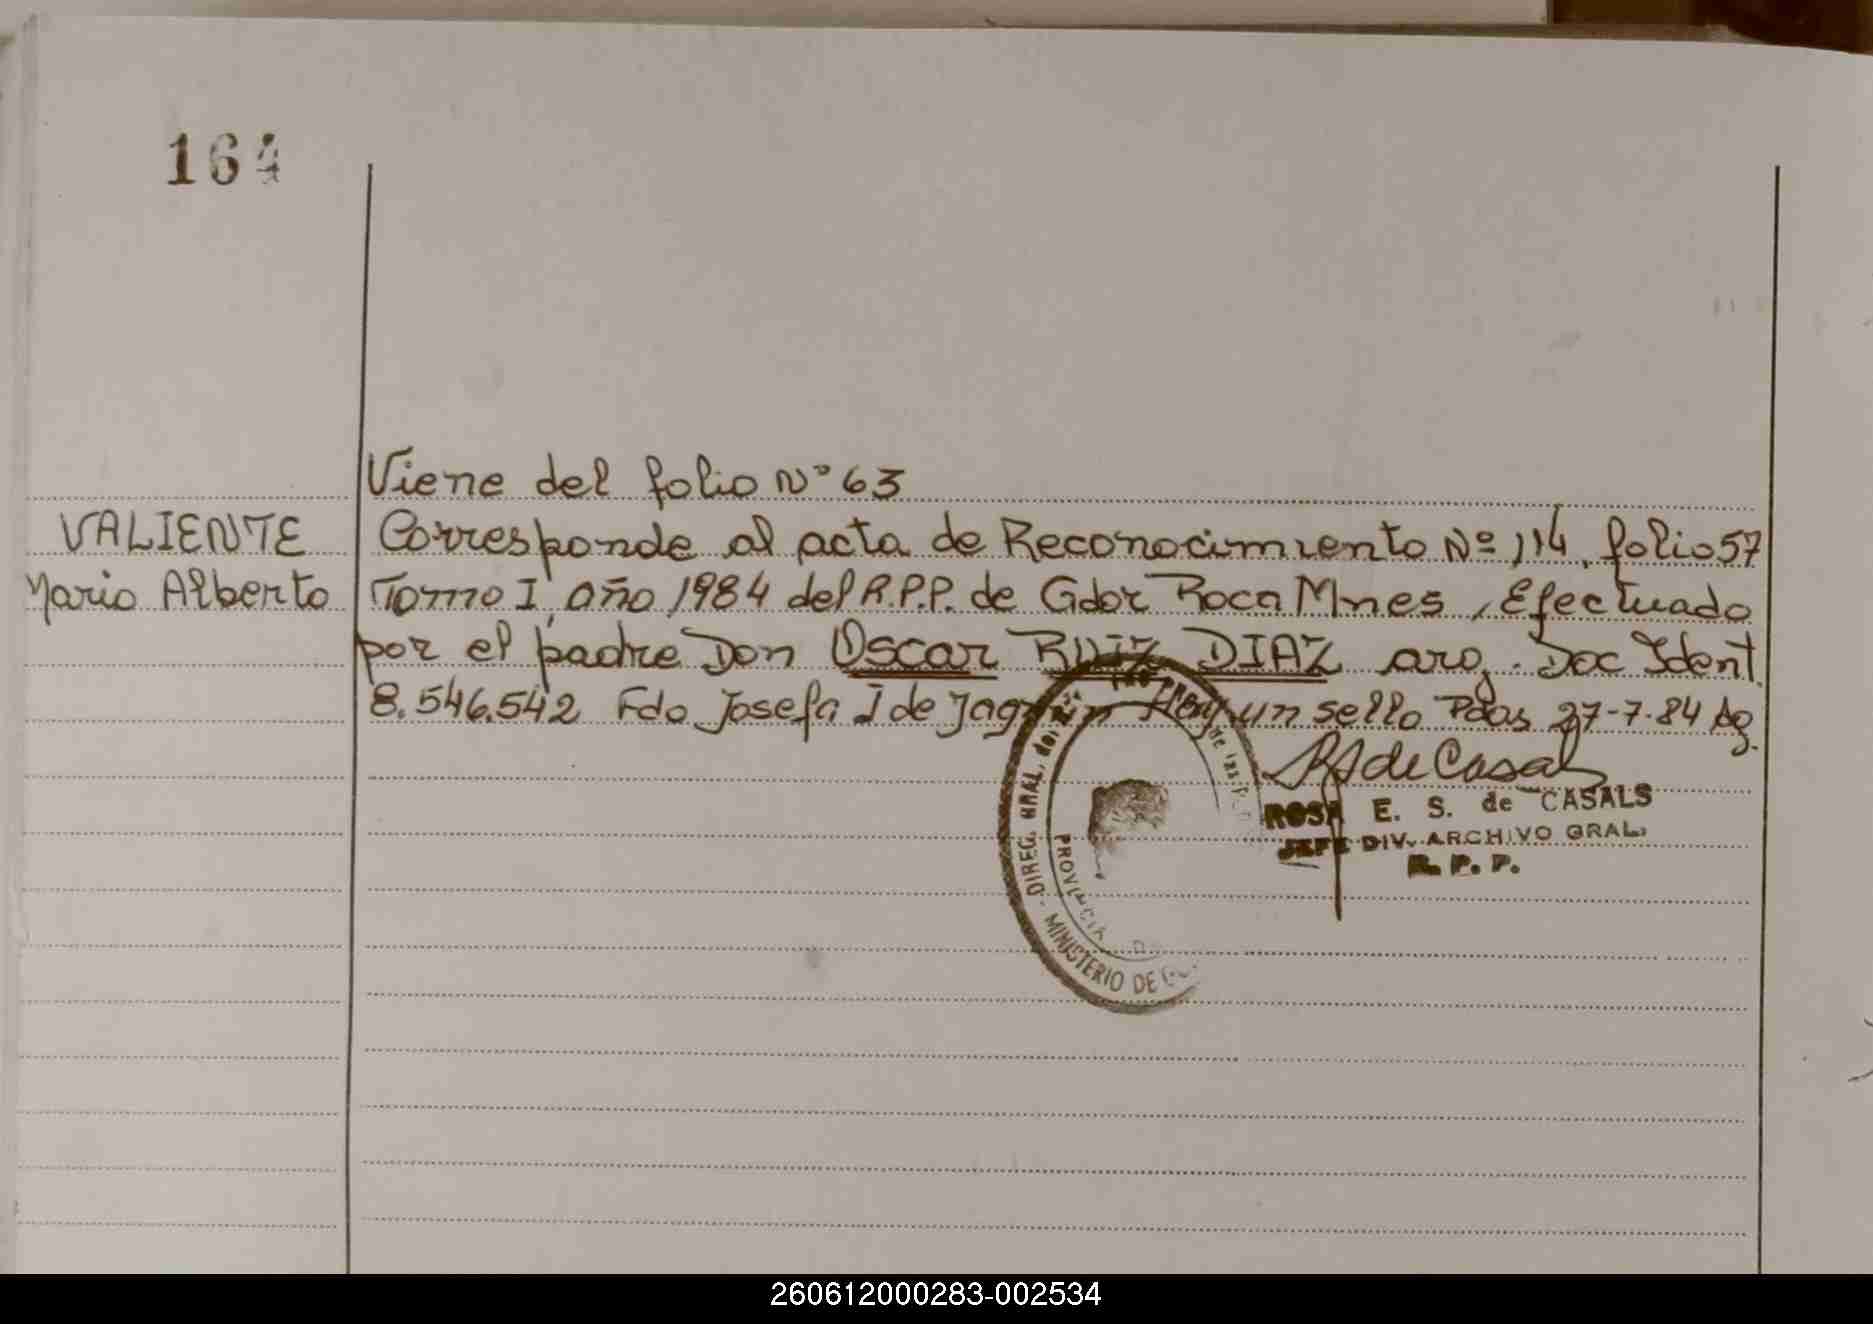 164
Viene del folio Nº 63
VALIENTE
Mario Alberto
Corresponde al acta de Reconocimiento Nº 114, folio 57
Tomo I, año 1984 del R.P.P. de Gdor Roca Mnes, Efectuado
por el padre Don Oscar RUIZ DIAZ arg. Doc Ident.
8.546.542 Fdo Josefa I de Hay un sello Pdas 27-7-84
RS de Casals
ROSA E. S. de CASALS
JEFE DIV. ARCHIVO GRAL.
R. P. P.
DIREC. GRAL. del
MINISTERIO DE
PROVINCIA
260612000283-002534